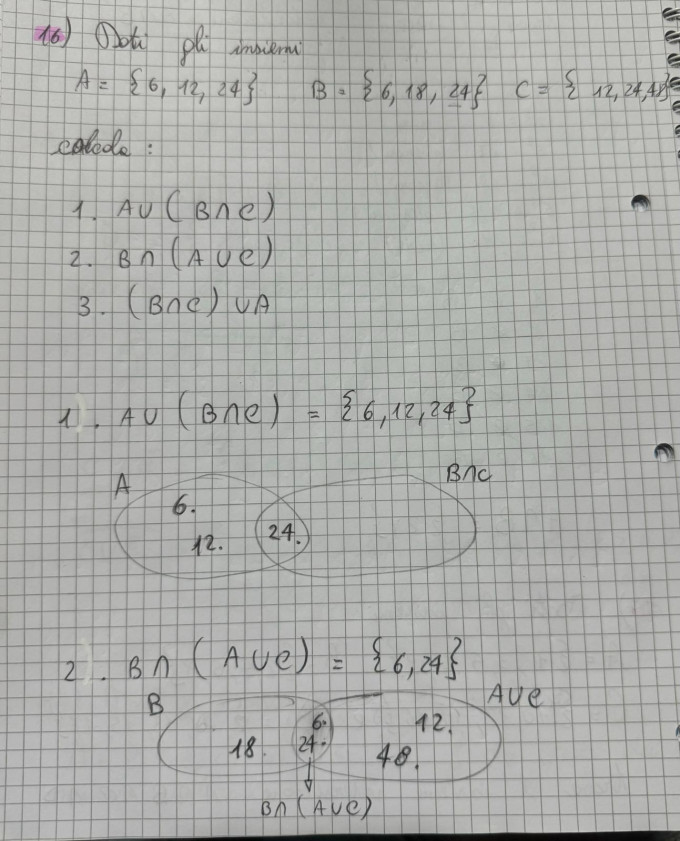 16) Dati gli insiemi
A = {6, 12, 24} B = {6, 18, 24} C = { 12, 24, 48}
calcola :
1. A∪(B∩C)
2. B∩(A∪C)
3. (B∩C)∪A
1). A∪(B∩C) = {6, 12, 24}
A B∩C
6.
12. 24.
2). B∩(A∪C) = {6, 24}
B A∪C
6. 12.
18. 24. 48.
B∩(A∪C)